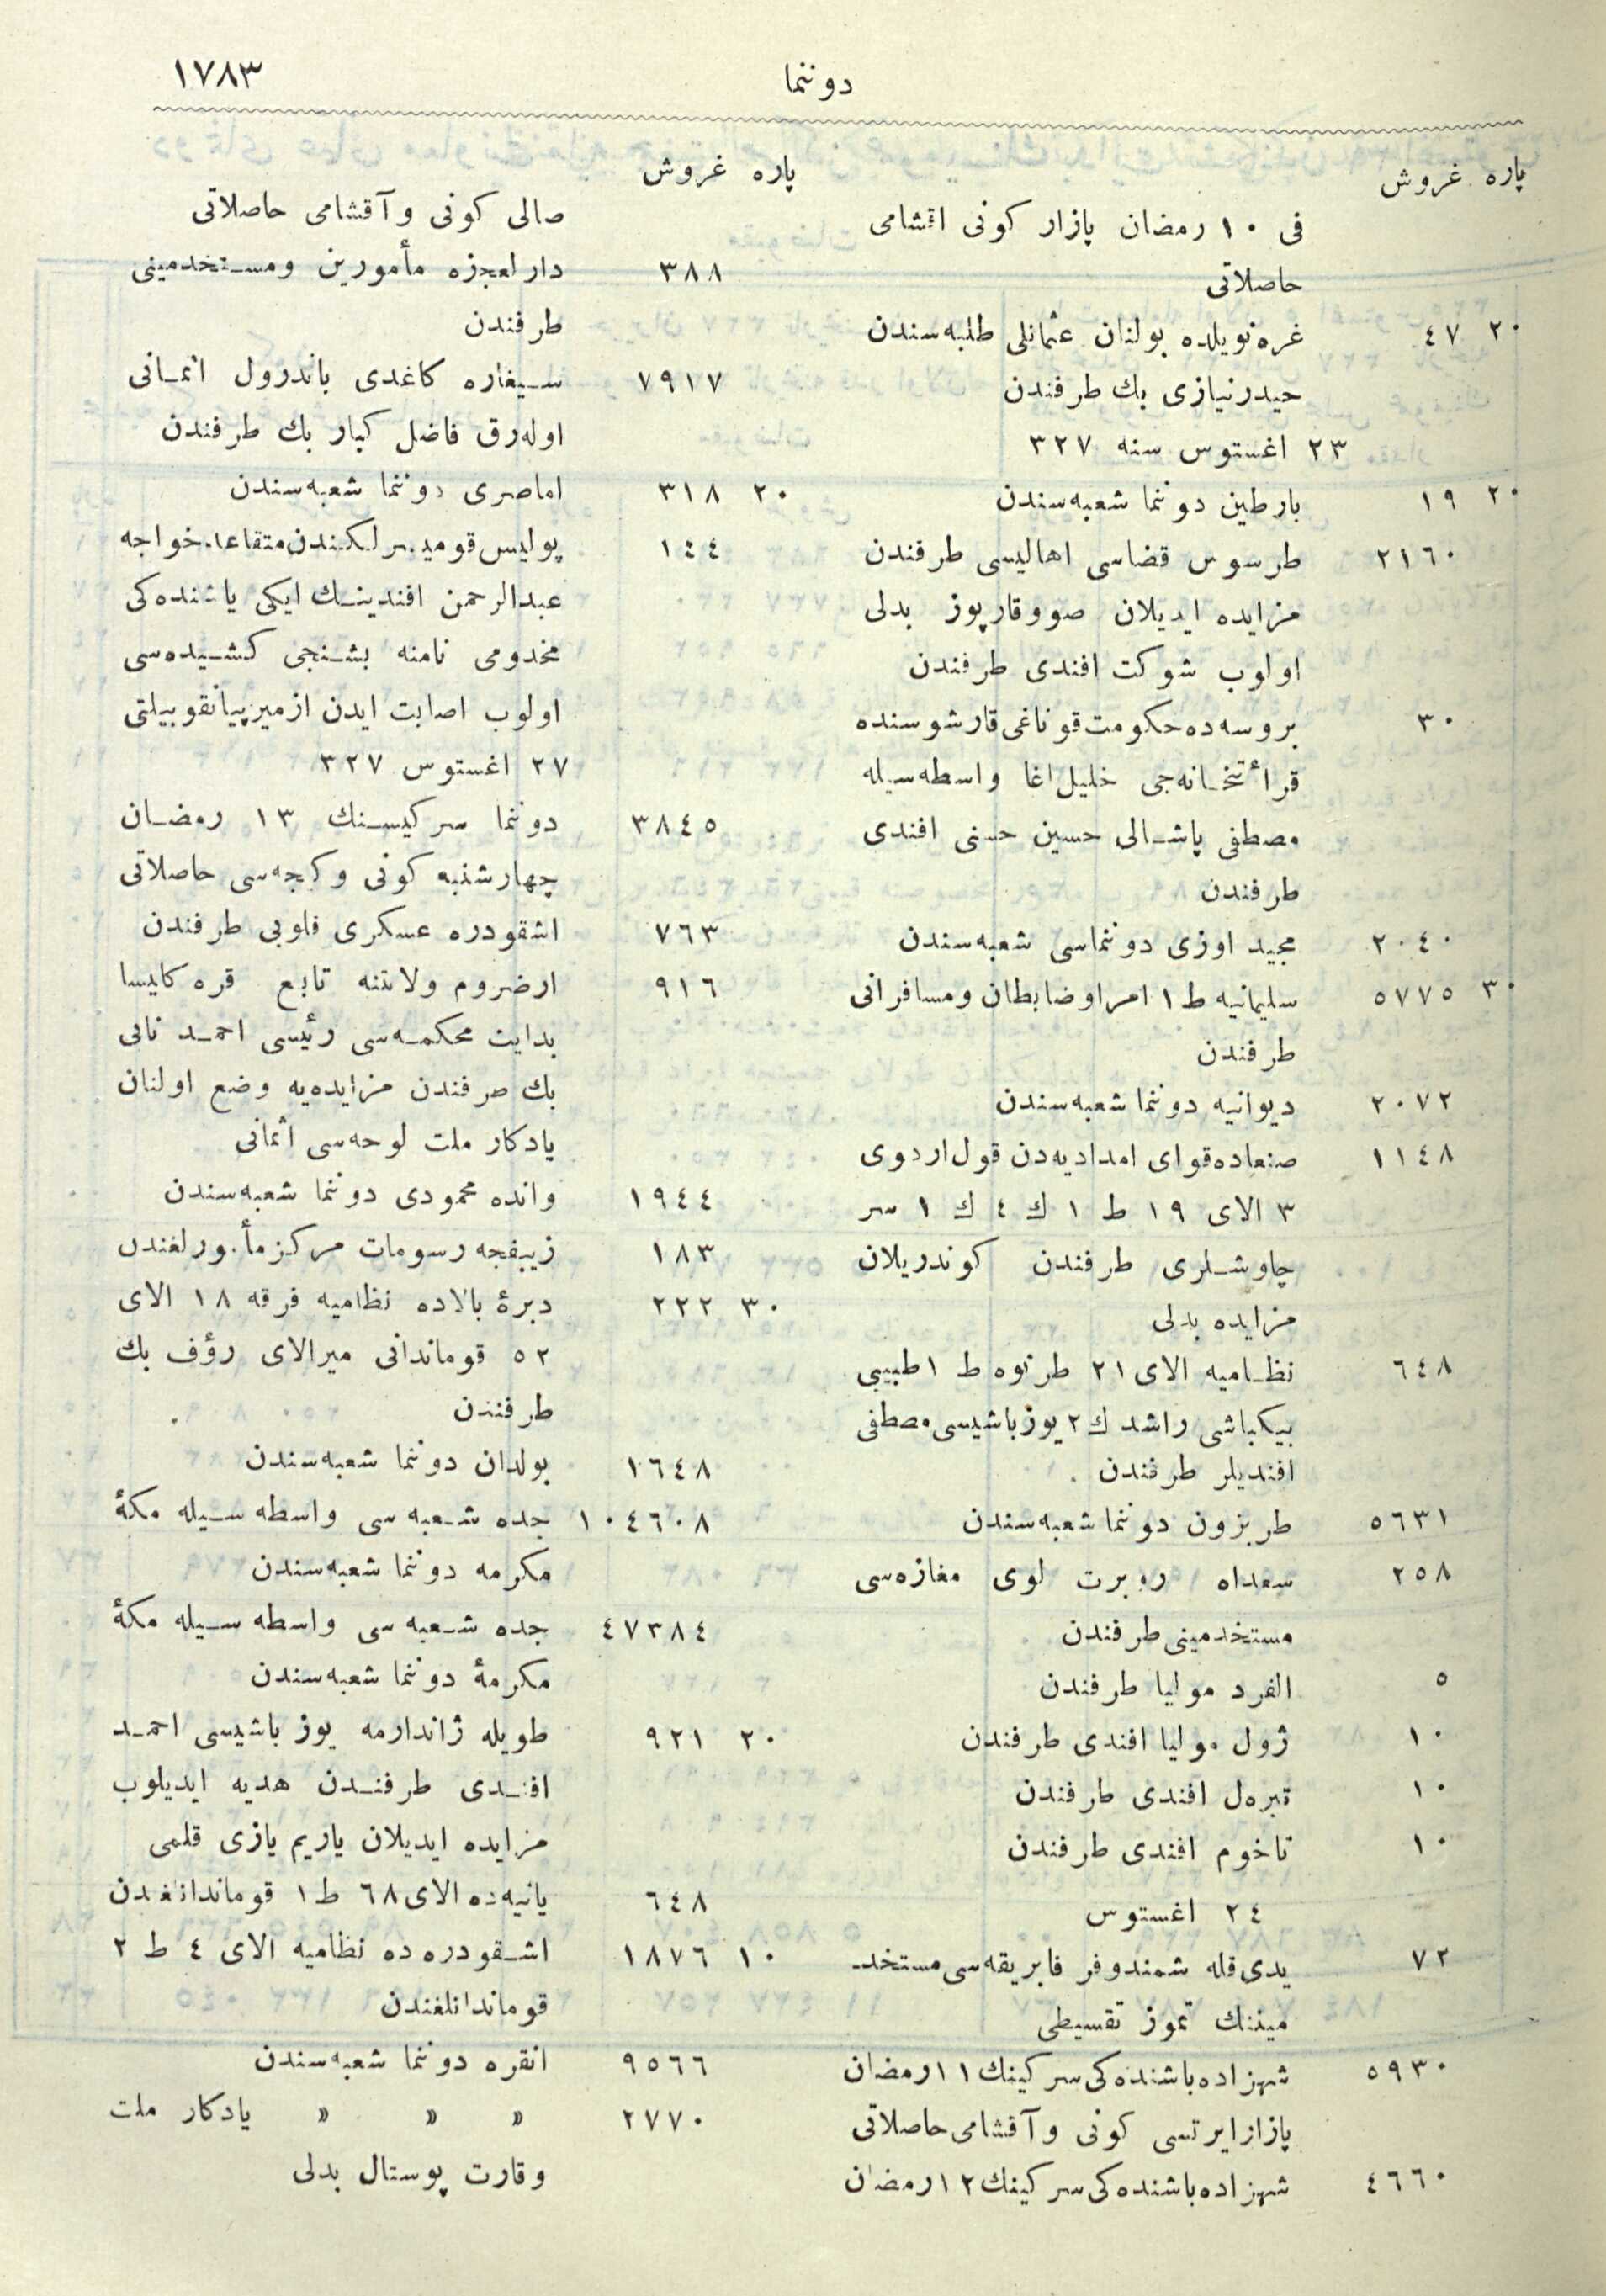 دوننما ١٧٨٣
پاره غروش
فی ١٠ رمضان پازار كونی اقشامی
حاصلاتی
٢٠ ٤٧ غره‌نویلده بولنان عثمانلی طلبه‌سندن
حیدرنیازی بك طرفندن
٢٣ اغستوس سنه ٣٢٧
٢٠ ١٩ بارطین دوننما شعبه‌سندن
٢١٦٠ طرسوس قضاسی اهالیسی طرفندن
مزایده ایدیلان صووقارپوز بدلی
اولوب شوكت افندی طرفندن
٣٠ بروسه‌ده حكومت قوناغی قارشوسنده
قرائتخانه‌جی خلیل اغا واسطه‌سیله
مصطفی پاشالی حسین حسنی افندی
طرفندن
٢٠٤٠ مجید اوزی دوننماسی شعبه‌سندن
٣٠ ٥٧٧٥ سلیمانیه ط ١ امراوضابطان ومسافرانی
طرفندن
٢٠٧٢ دیوانیه دوننما شعبه‌سندن
١١٤٨ صنعاده‌قوای امدادیه‌دن قول اردوی
٣ الای ١٩ ط ١ ك ٤ ك ١ سر
چاوشلری طرفندن كوندریلان
مزایده بدلی
٦٤٨ نظامیه الای ٢١ طرنوه ط ١ طبیبی
بیكباشی راشد ك ٢ یوزباشیسی مصطفی
افندیلر طرفندن
٥٦٣١ طربزون دوننما شعبه‌سندن
٢٥٨ سعداه روبرت لوی مغازه‌سی
مستخدمینی طرفندن
٥ الفرد مولیا طرفندن
١٠ ژول مولیا افندی طرفندن
١٠ تبره‌ل افندی طرفندن
١٠ ناخوم افندی طرفندن
٢٤ اغستوس
٧٢ یدی قله شمندوفر فابریقه‌سی مستخد-
مینك تموز تقسیطی
٥٩٣٠ شهزاده‌باشنده‌كی سركینك ١١ رمضان
پازارایرتسی كونی وآقشامی حاصلاتی
٤٦٦٠ شهزاده‌باشنده‌كی سركینك ١٢ رمضان
پاره غروش
صالی كونی وآقشامی حاصلاتی
٣٨٨ دارلعجزه مأمورین ومستخدمینی
طرفندن
٧٩١٧ سیغاره كاغدی باندرول اثمانی
اوله‌رق فاضل كبار بك طرفندن
٢٠ ٣١٨ اماصری دوننما شعبه‌سندن
١٤٤ پولیس قومیسرلكندن متقاعد خواجه
عبدالرحمن افندینك ایكی یاشنده‌كی
مخدومی نامنه بشنجی كشیده‌سی
اولوب اصابت ایدن ازمیرپیانقوبیلتی
٢٧ اغستوس ٣٢٧
٣٨٤٥ دوننما سركیسنك ١٣ رمضان
چهارشنبه كونی وكیجه‌سی حاصلاتی
٧٦٣ اشقودره عسكری قلوبی طرفندن
٩١٦ ارضروم ولایتنه تابع قره كلیسا
بدایت محكمه‌سی رئیسی احمد نائی
بك طرفندن مزایده‌یه وضع اولنان
یادكار ملت لوحه‌سی اثمانی
١٩٤٤ وانده محمودی دوننما شعبه‌سندن
١٨٣ زیبفجه رسومات مركزمأمورلغندن
٣٠ ٢٢٢ دبرهٔ بالاده نظامیه فرقه ١٨ الای
٥٢ قوماندانی میرالای رؤف بك
طرفندن
١٦٤٨ بولدان دوننما شعبه‌سندن
١٠٤٦٠٨ جده شعبه‌سی واسطه‌سیله مكهٔ
مكرمه دوننما شعبه‌سندن
٤٧٣٨٤ جده شعبه‌سی واسطه‌سیله مكهٔ
مكرمهٔ دوننما شعبه‌سندن
٢٠ ٩٢١ طویله ژاندارمه یوز باشیسی احمد
افندی طرفندن هدیه ایدیلوب
مزایده ایدیلان یازیم یازی قلمی
٦٤٨ یانیه‌ده الای ٦٨ ط ١ قوماندانلغندن
١٠ ١٨٧٦ اشقودره‌ده نظامیه الای ٤ ط ٢
قوماندانلغندن
٩٥٦٦ انقره دوننما شعبه‌سندن
٢٧٧٠ » » » یادكار ملت
وقارت پوستال بدلی